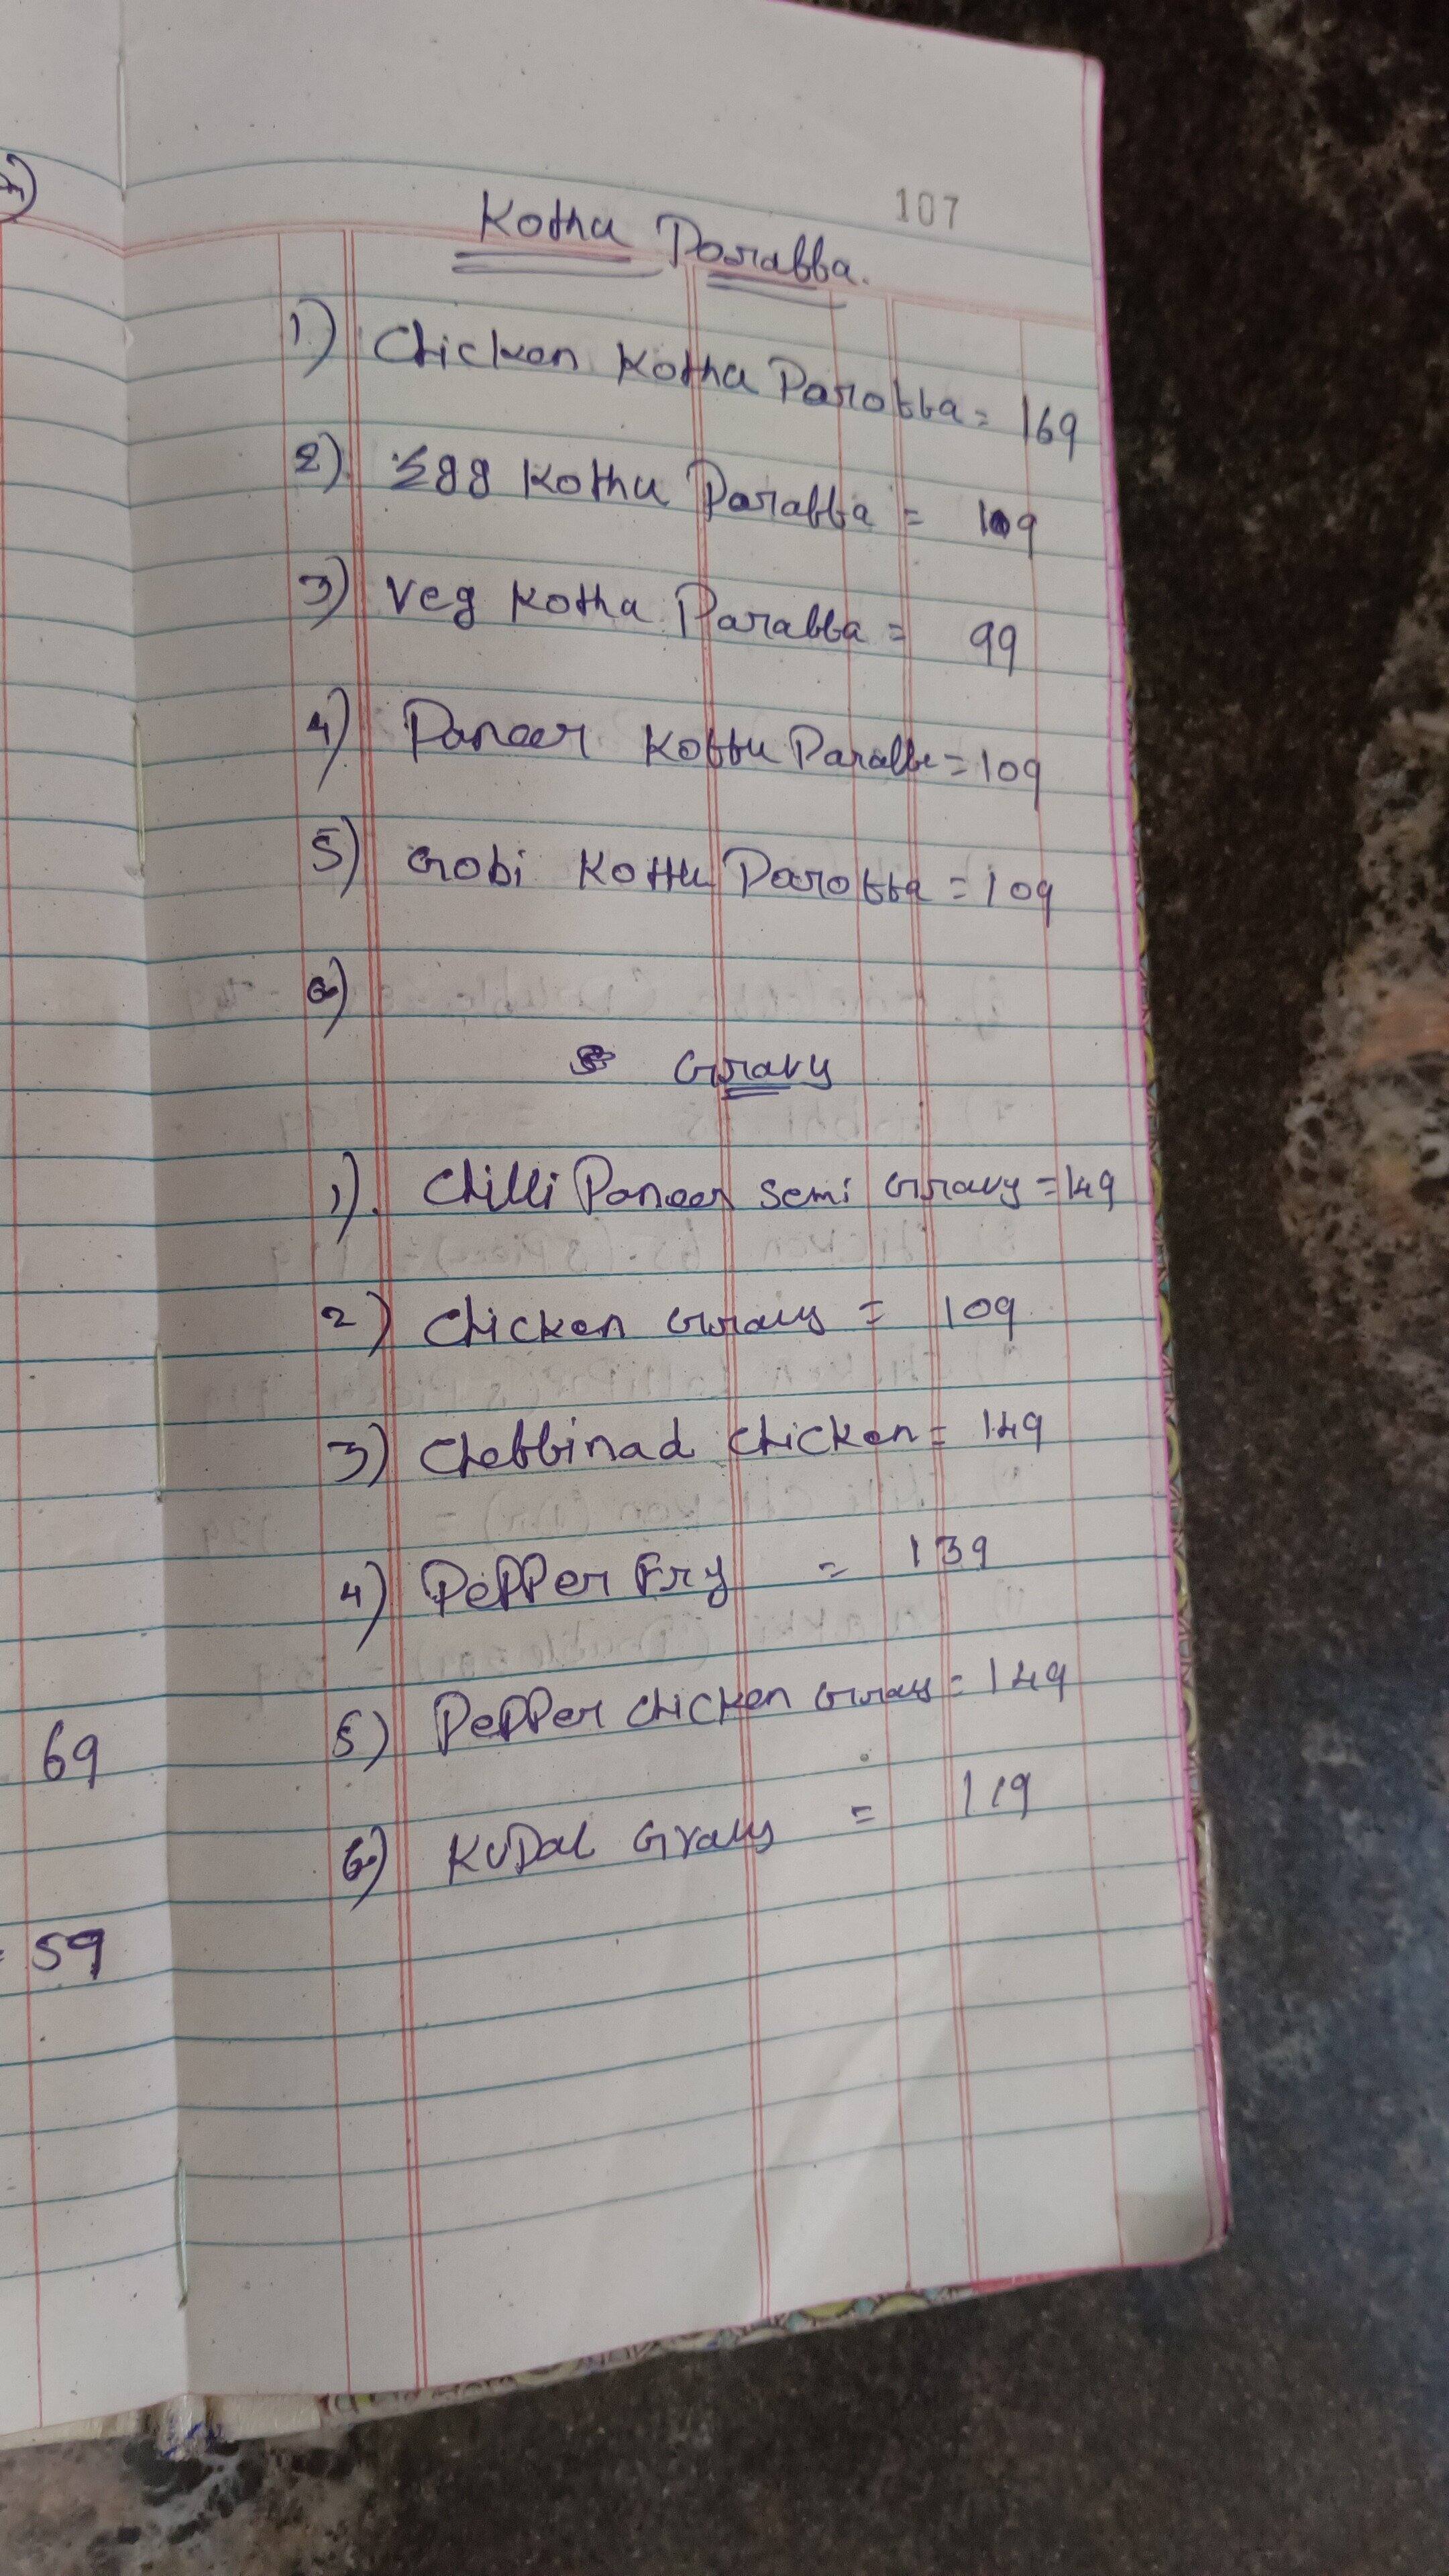 107
Kothu Parabba.
1) Chicken Kothu Parotta = 169
2) Egg Kothu Parabba = 109
3) Veg Kothu Parabba = 99
4) Paneer Kottu Paratta = 109
5) Gobi Kottu Parotta = 109
6)
Gravy
1). Chilli Paneer semi Gravy = 149
2) Chicken Gravy = 109
3) Chettinad Chicken = 149
4) Pepper Fry = 139
5) Pepper chicken Gravy = 149
6) Kudal Gravy = 119
69
= 59